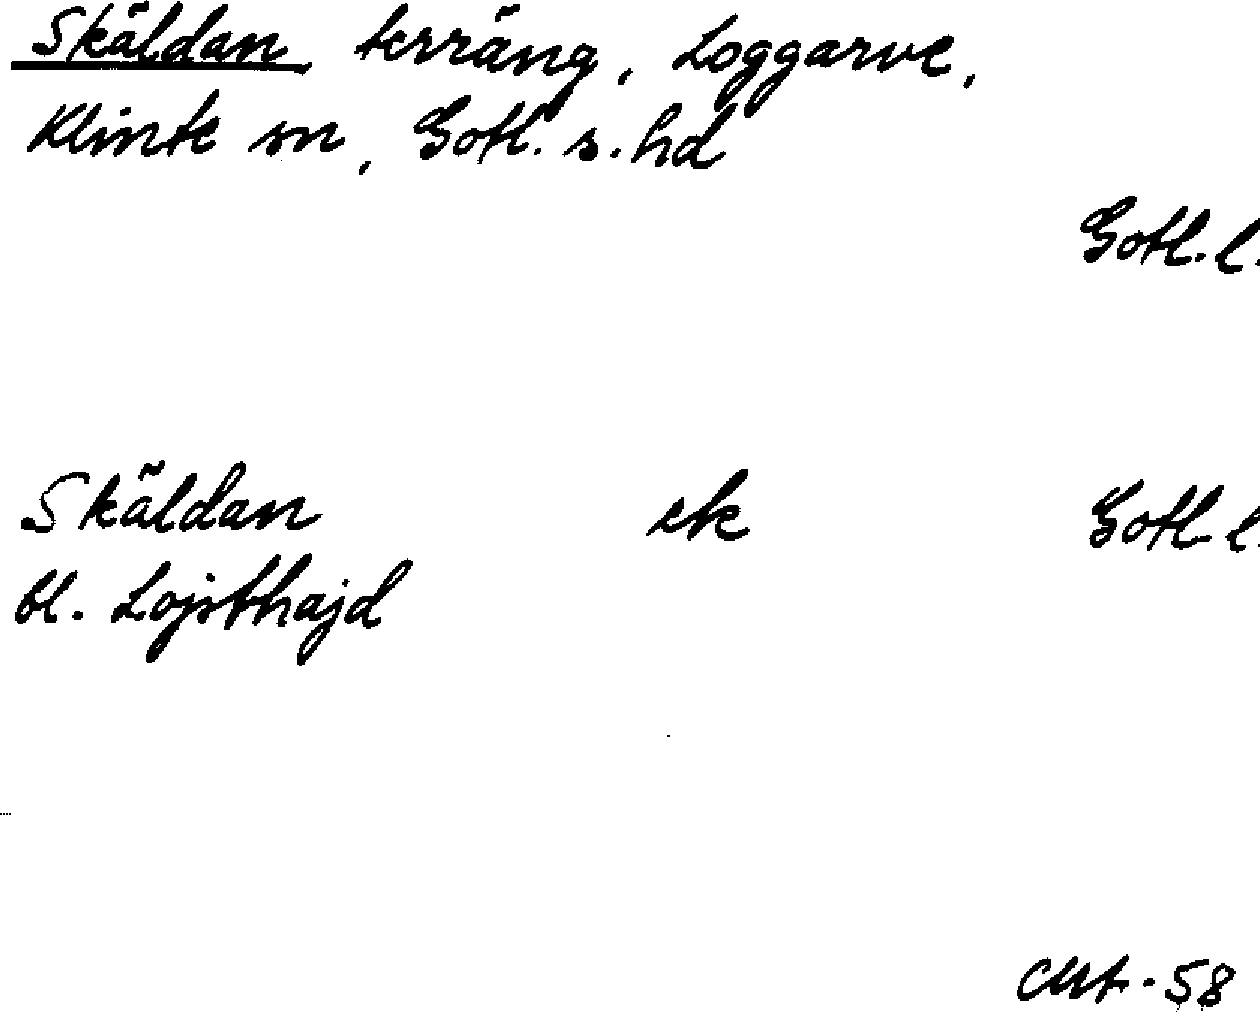 Skäldan terräng, Loggarve,
Klinte sn, Gotl. s. hd
Gotl. l.
Skäldan ek Gotl. l.
bl. Lojsthajd
-58